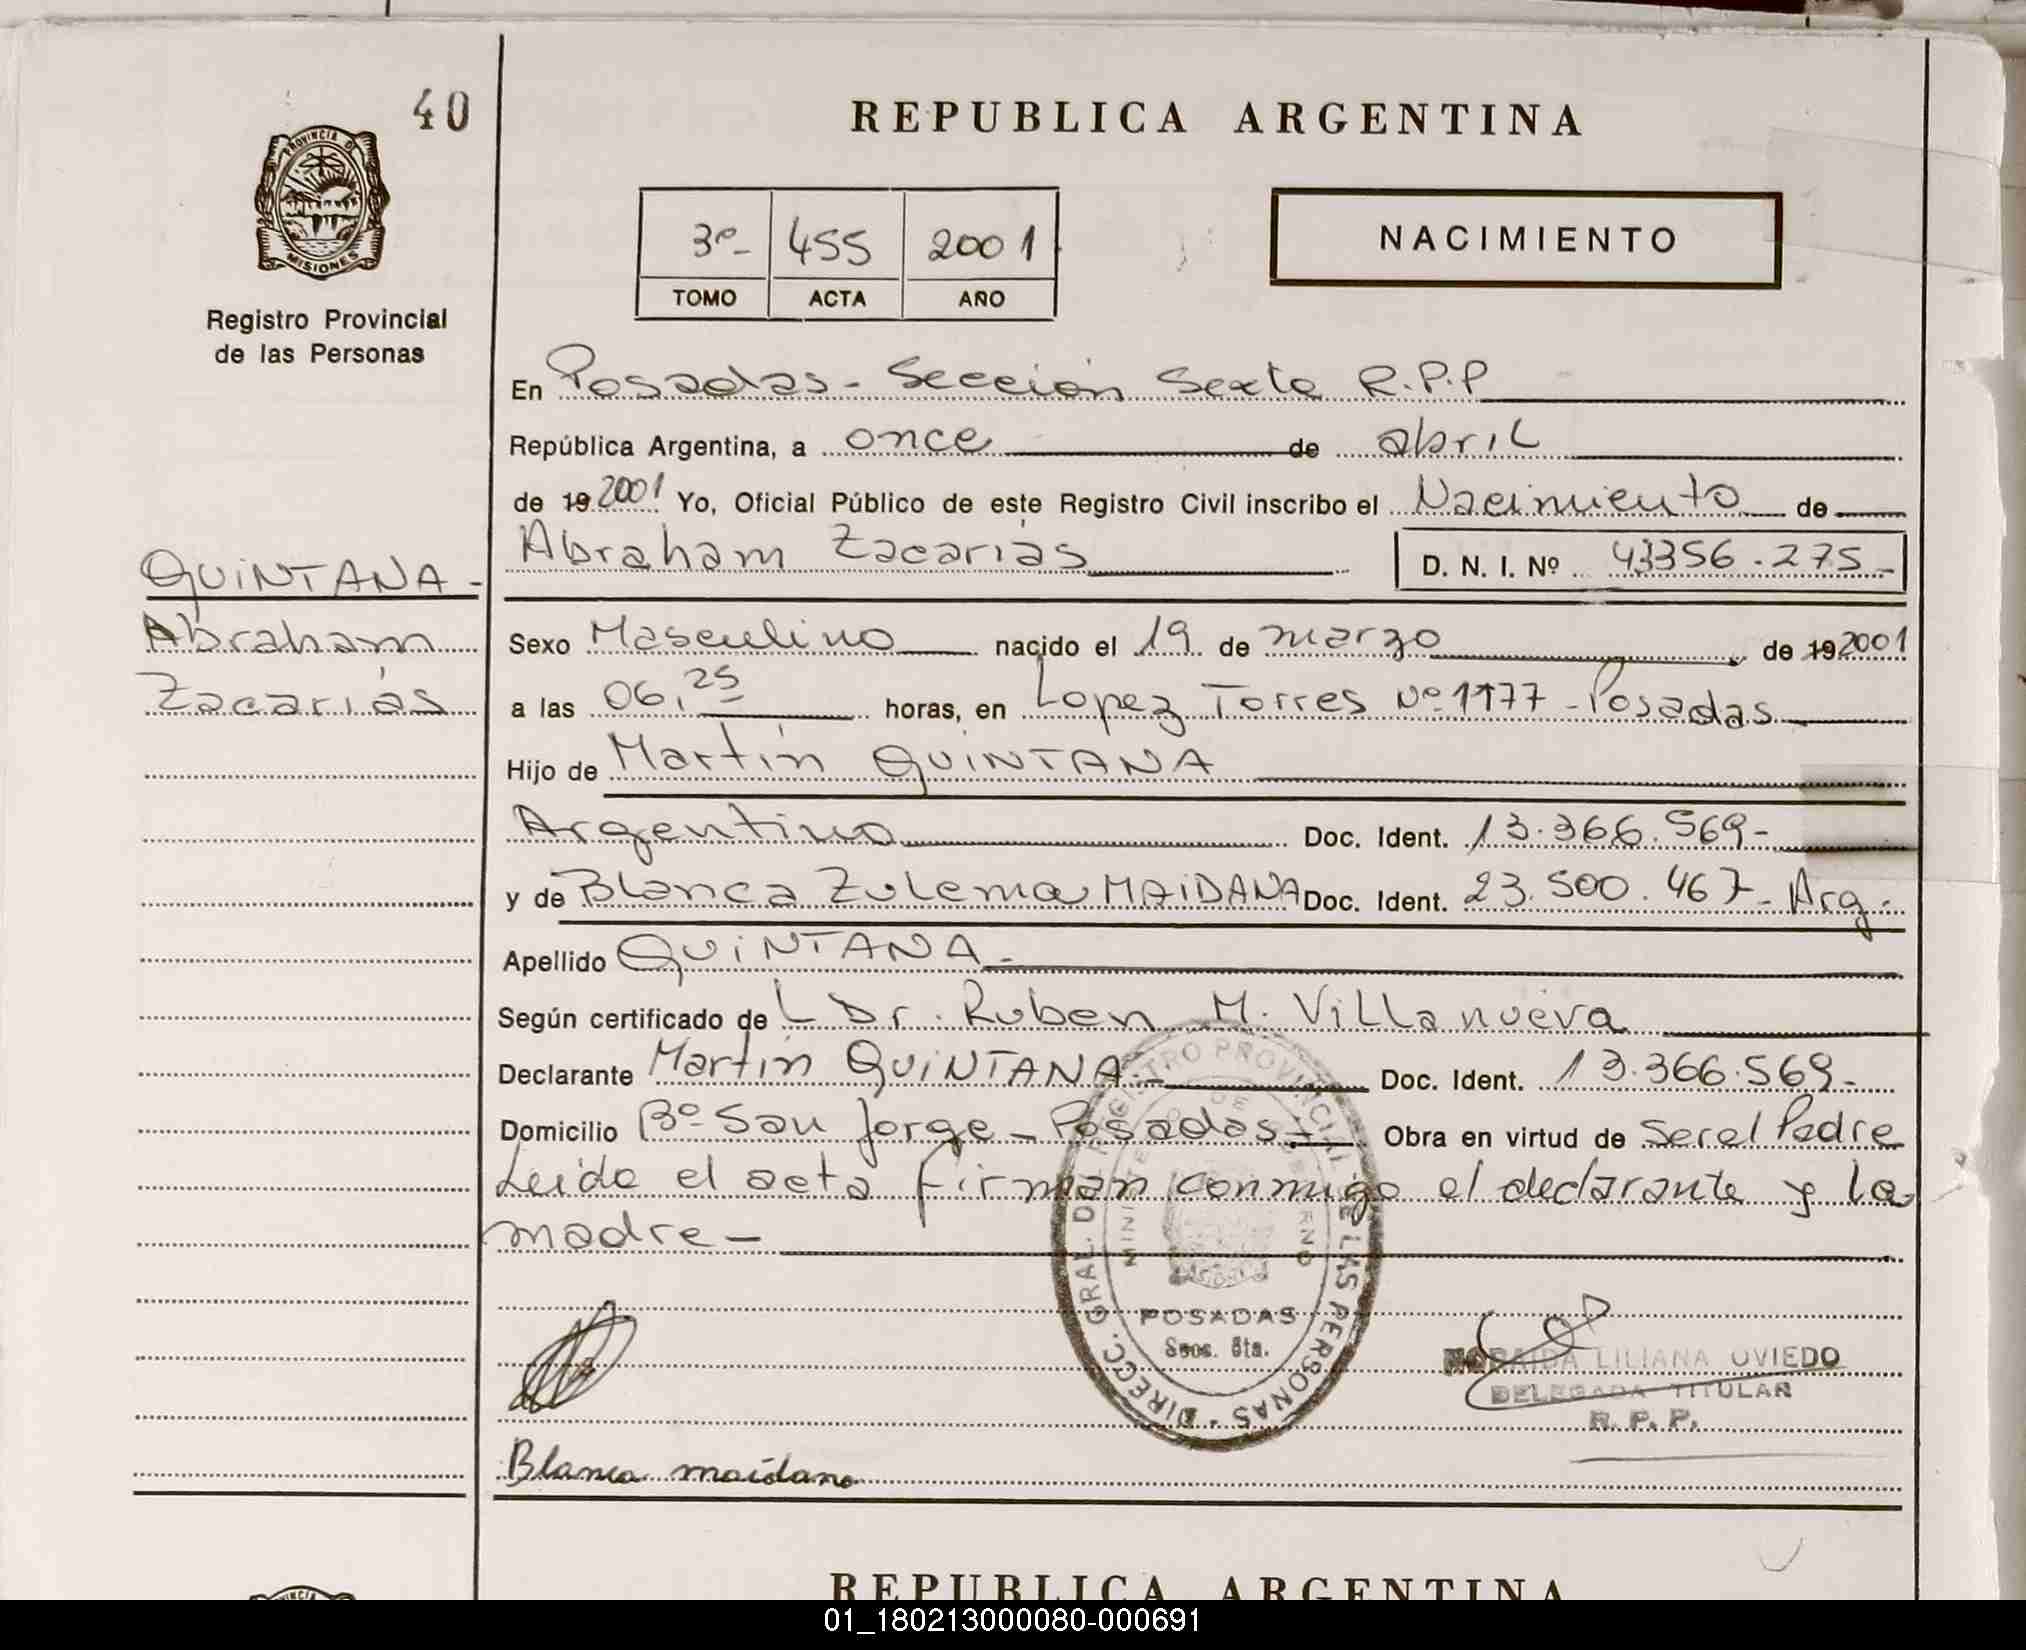 40
REPUBLICA ARGENTINA
PROVINCIA DE
MISIONES
Registro Provincial
de las Personas
3º- 455 2001
TOMO ACTA AÑO
NACIMIENTO
En Posadas - Sección Sexta R.P.P
República Argentina, a once de abril
de 19 2001 Yo, Oficial Público de este Registro Civil inscribo el Nacimiento de
Abraham Zacarías D. N. I. Nº 43356.275-
QUINTANA-
Abraham
Zacarías
Sexo Masculino nacido el 19 de marzo de 19 2001
a las 06,25 horas, en Lopez Torres Nº 1177 - Posadas
Hijo de Martín QUINTANA
Argentino Doc. Ident. 13.366.569-
y de Blanca Zulema MAIDANA Doc. Ident. 23.500.467- Arg.
Apellido QUINTANA-
Según certificado de L Dr. Ruben M. Villanueva
Declarante Martín QUINTANA- Doc. Ident. 13.366.569-
Domicilio Bº San Jorge - Posadas- Obra en virtud de ser el Padre
Leida el acta firman conmigo el declarante y la
madre-
DIRECC. GRAL. DEL REGISTRO PROVINCIAL DE LAS PERSONAS
MINISTERIO DE GOBIERNO
POSADAS
Secc. 6ta.
LILIANA OVIEDO
DELEGADA TITULAR
R. P. P.
Blanca maidana
REPUBLICA ARGENTINA
01_180213000080-000691